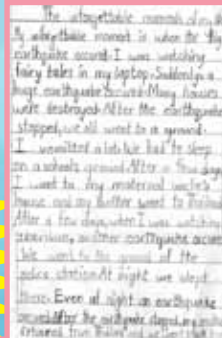 The unforgettable moment of my
My unforgettable moment is when the big
earthquake occured. I was watching
fairy tales in my laptop. Suddenly, a
huge earthquake occured. Many houses
were destroyed. After the earthquake
stopped, we all went to a ground.
I vomitted a lot. We had to sleep
on a school's ground. After a few days,
I went to my maternal uncle's
house and my father went to
After a few days, when I was watching
another earthquake occured
We went to the ground of the
police station. At night we slept
there. Even at night an earthquake
occured. After the earthquake stopped, my
returned from and we